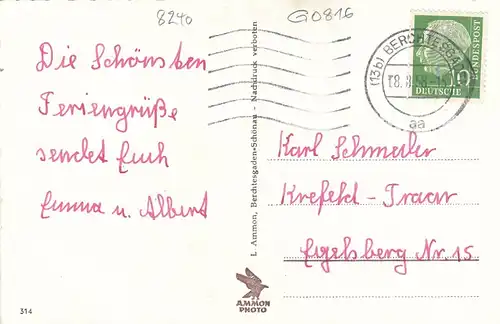 8240
G0816
Die Schönsten
Feriengrüße
sendet Euch
Emma u. Albert
314
L. Ammon, Berchtesgaden-Schönau - Nachdruck verboten
AMMON
PHOTO
(13b) BERCHTESGA
18. 8. 58
aa
DEUTSCHE
BUNDESPOST
10
Karl Schmeiler
Krefeld-Traar
Egelsberg Nr. 15